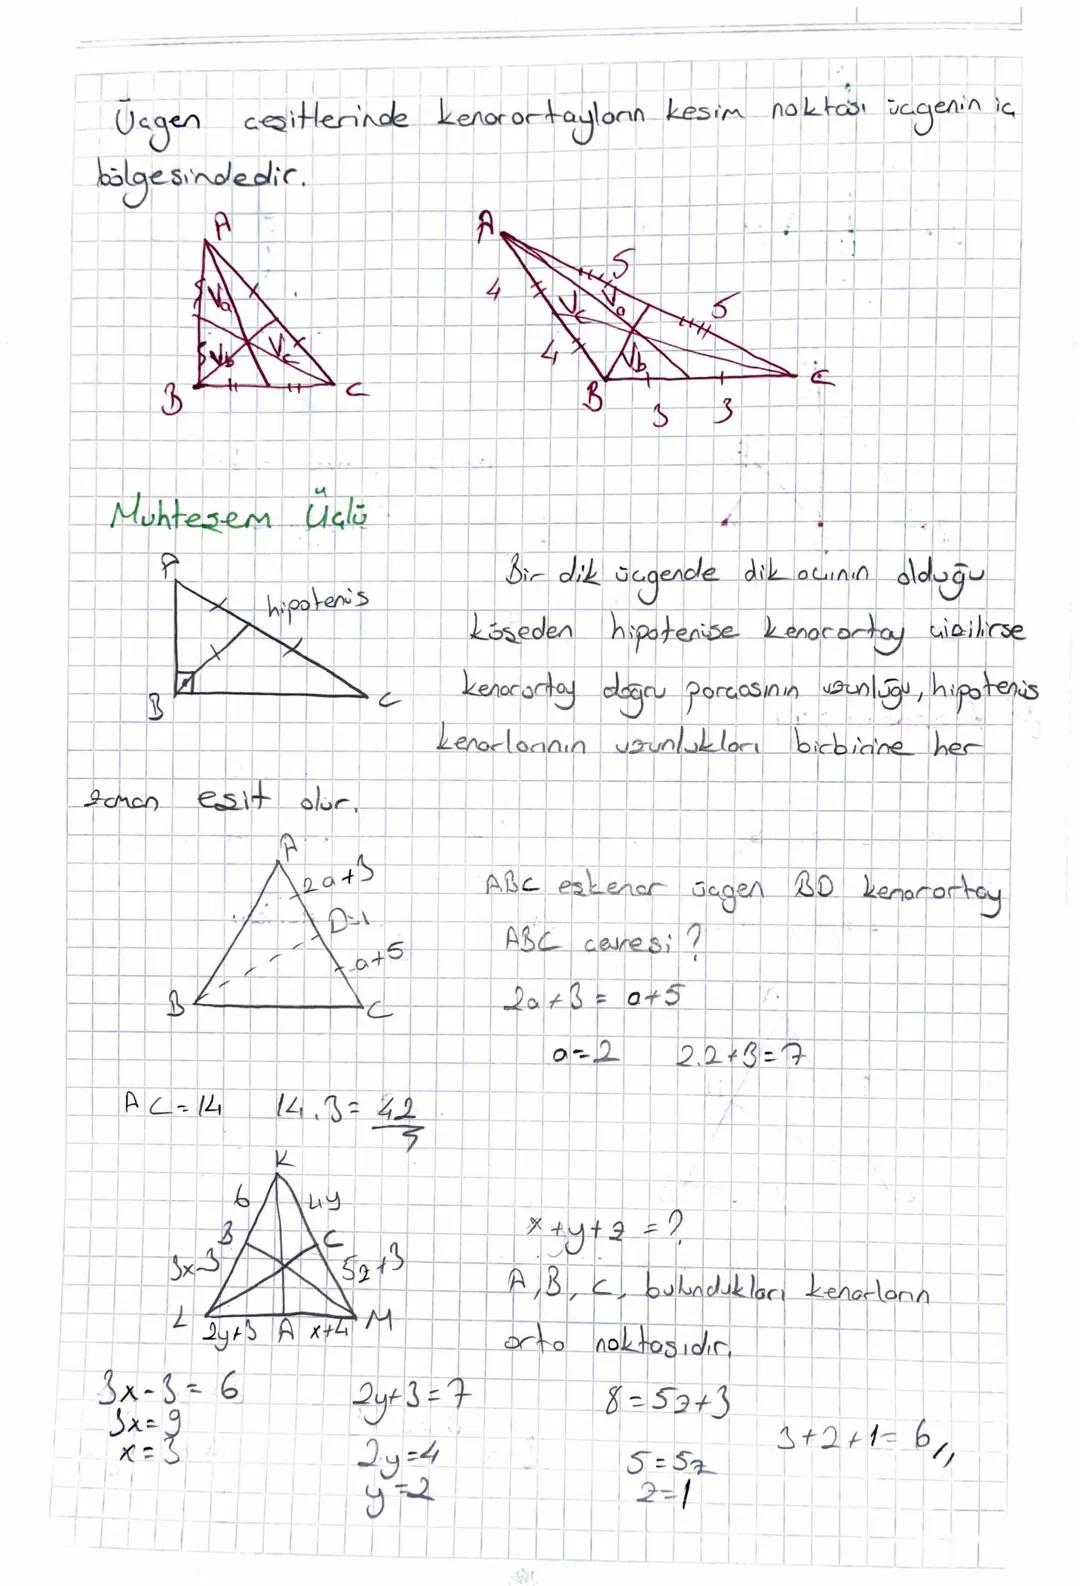 Üçgen çeşitlerinde kenarortayların kesim noktası üçgenin iç
bölgesindedir.
A
Va
Vb
Vc
B
C
A
5
5
4
4
Vc
Va
Vb
B
3
3
C
Muhteşem Üçlü
A
hipotenüs
B
C
Bir dik üçgende dik açının olduğu
köşeden hipotenüse kenarortay çizilirse
kenarortay doğru parçasının uzunluğu, hipotenüs
kenarlarının uzunlukları birbirine her
zaman eşit olur.
A
2a+3
D
a+5
B
C
ABC eşkenar üçgen BD kenarortay
ABC çevresi?
2a+3 = a+5
a=2 2.2+3=7
AC=14 14.3=42
K
6
4y
B
C
3x-3
5z+3
L
2y+3 A x+4 M
x+y+z =?
A,B,C, bulundukları kenarların
orta noktasıdır.
3x-3=6
3x=9
x=3
2y+3=7
2y=4
y=2
8=5z+3
5=5z
z=1
3+2+1=6,,